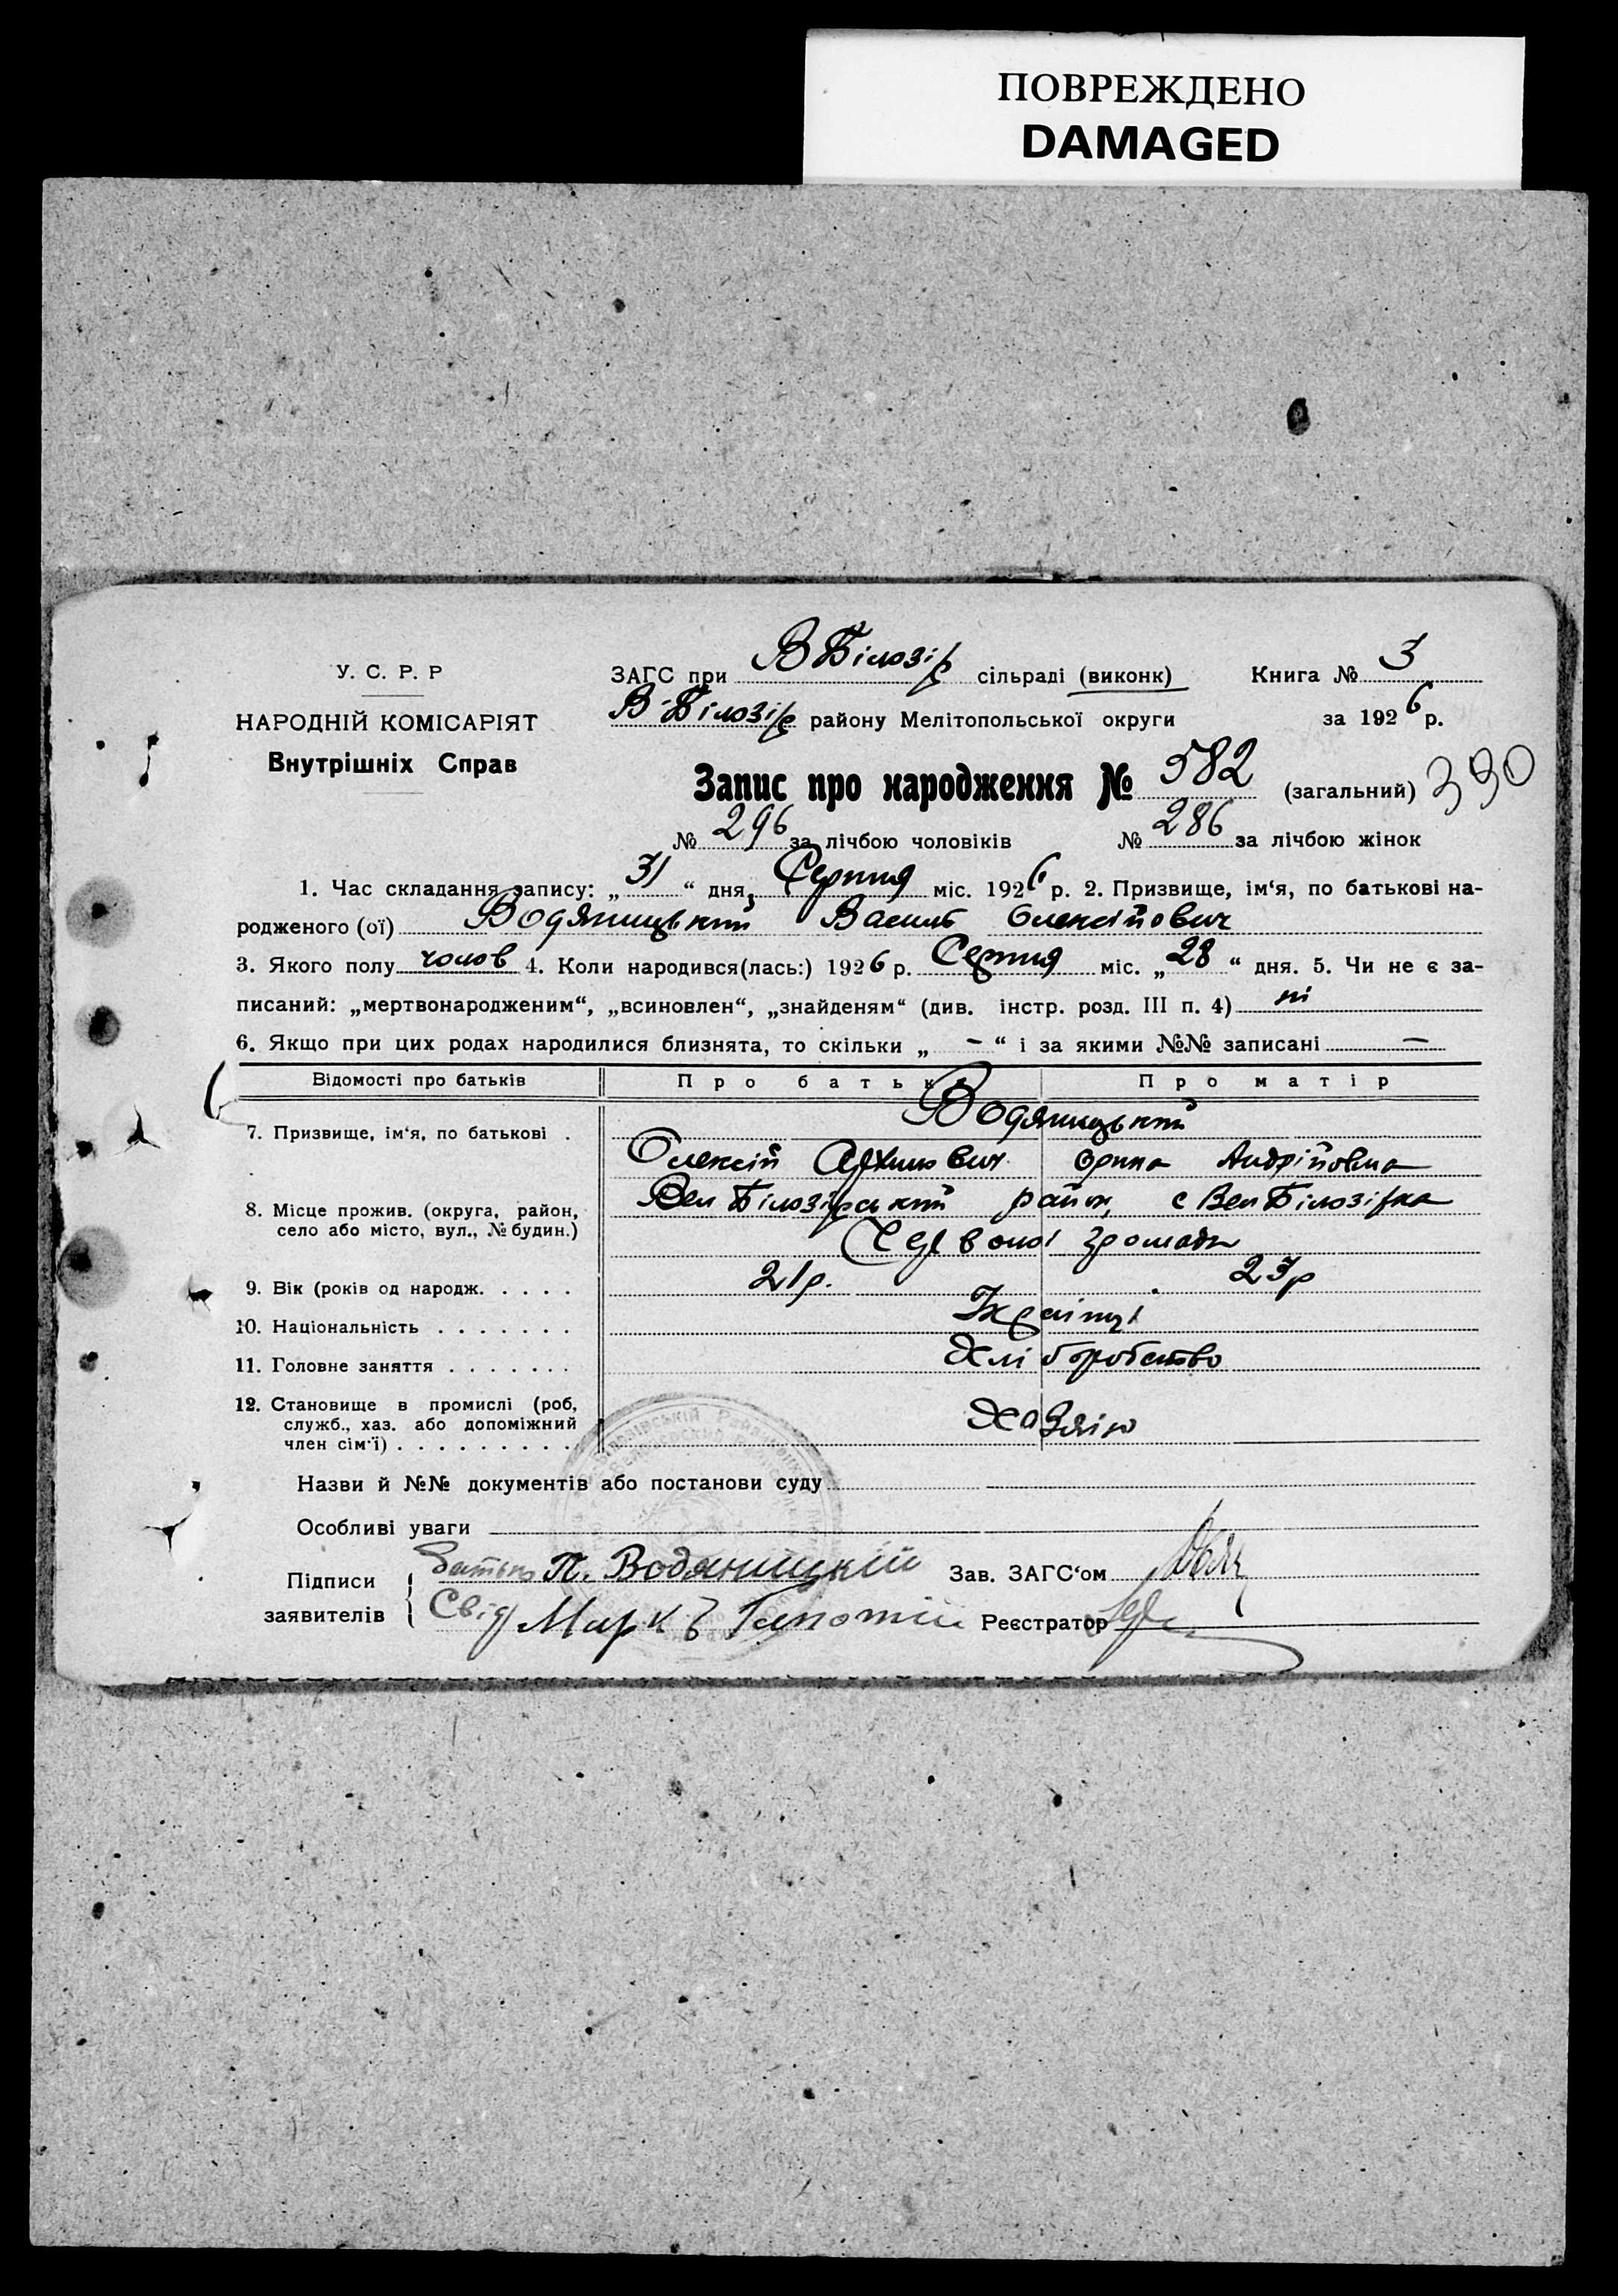 ПОВРЕЖДЕНО
DAMAGED
У. С. Р. Р
НАРОДНІЙ КОМІСАРІЯТ
Внутрішніх Справ
ЗАГС при В Білозір сільраді (виконк) Книга № 3
В-Білозір району Мелітопольської округи за 1926 р.
Запис про народження № 582 (загальний) 390
№ 296 за лічбою чоловіків № 286 за лічбою жінок
1. Час складання запису: „31“ дня, Серпня міс. 1926 р. 2. Призвище, ім‘я, по батькові на-
родженого (ої) Водяницький Василь Олексійович
3. Якого полу чолов 4. Коли народився(лась:) 1926 р. Серпня міс. „28“ дня. 5. Чи не є за-
писаний: „мертвонародженим“, „всиновлен“, „знайденям“ (див. інстр. розд. III п. 4) ні
6. Якщо при цих родах народилися близнята, то скільки „ – “ і за якими №№ записані –
Відомості про батьків Про батька Про матір
7. Призвище, ім‘я, по батькові . Водяницький
Олексій Архипович Орина Андрійовна
8. Місце прожив. (округа, район, село або місто, вул., № будин.) Вел Білозірський район, с Вел Білозірка
Червоної громади
9. Вік (років од народж. . . . . 21р. 23р
10. Національність . . . . . . . Українці
11. Головне заняття . . . . . . . Хліборобство
12. Становище в промислі (роб, служб., хаз. або допоміжний член сім‘ї) . . . . . . . . . Хазяїн
Назви й №№ документів або постанови суду
Особливі уваги
Підписи заявителів { батько П. Водяницкій Зав. ЗАГС‘ом
Свід Маркъ Реєстратор